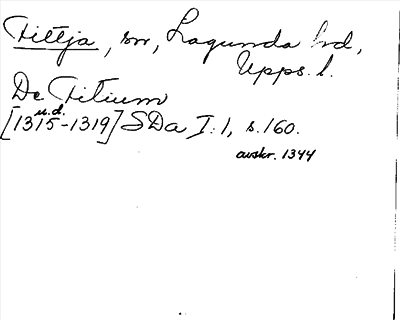 Fittja, sn, Lagunda hd,
Upps. l.
De Fitium
u.d.
[1315-1319] SDa I:1, s.160.
avskr. 1344